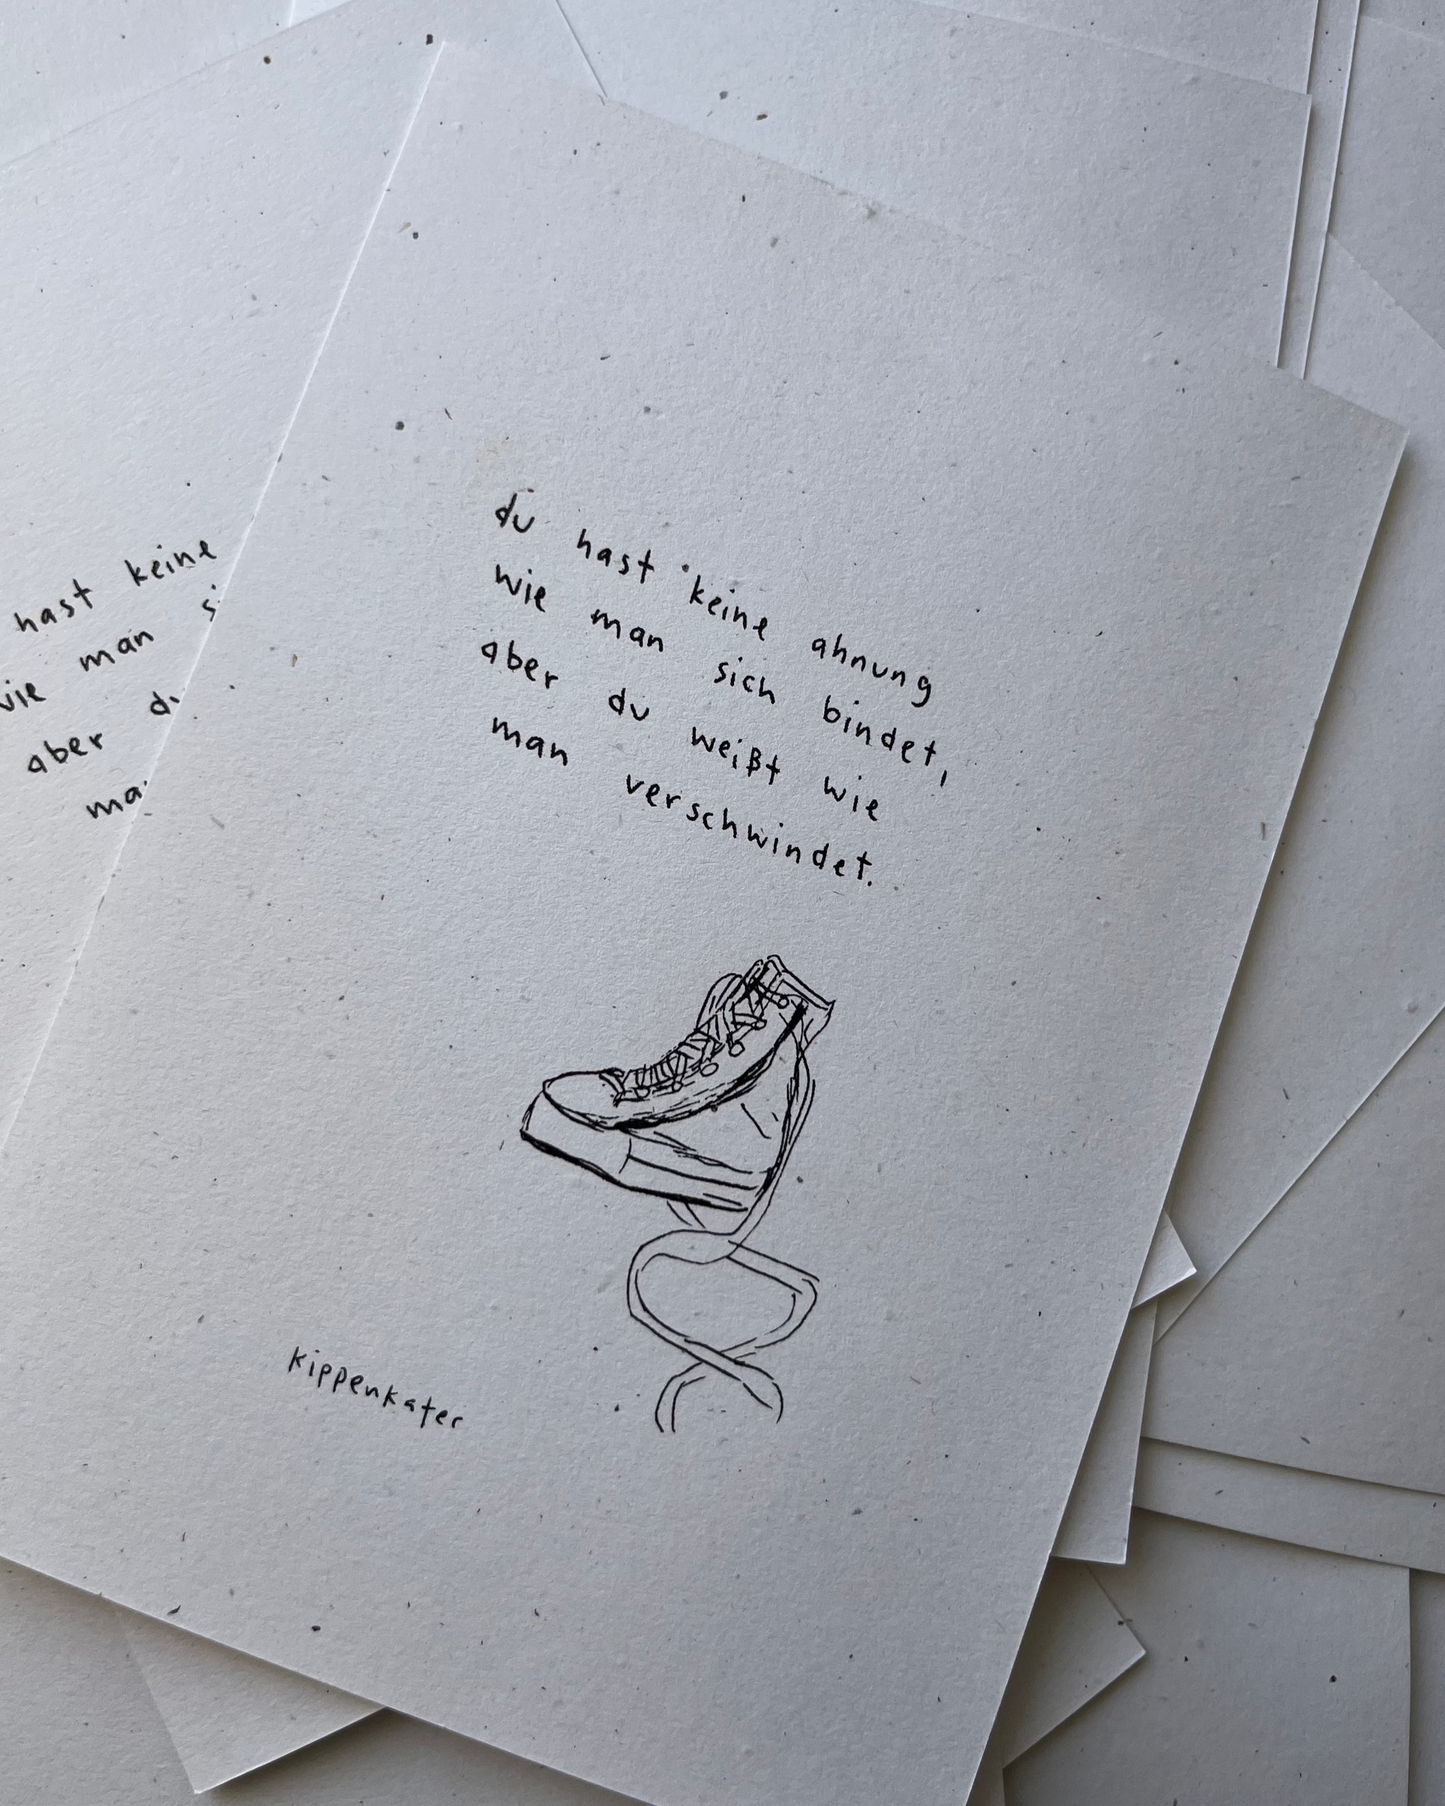 hast keine
wie man
aber du
du hast keine ahnung
wie man sich bindet,
aber du weißt wie
man verschwindet.
kippenkater